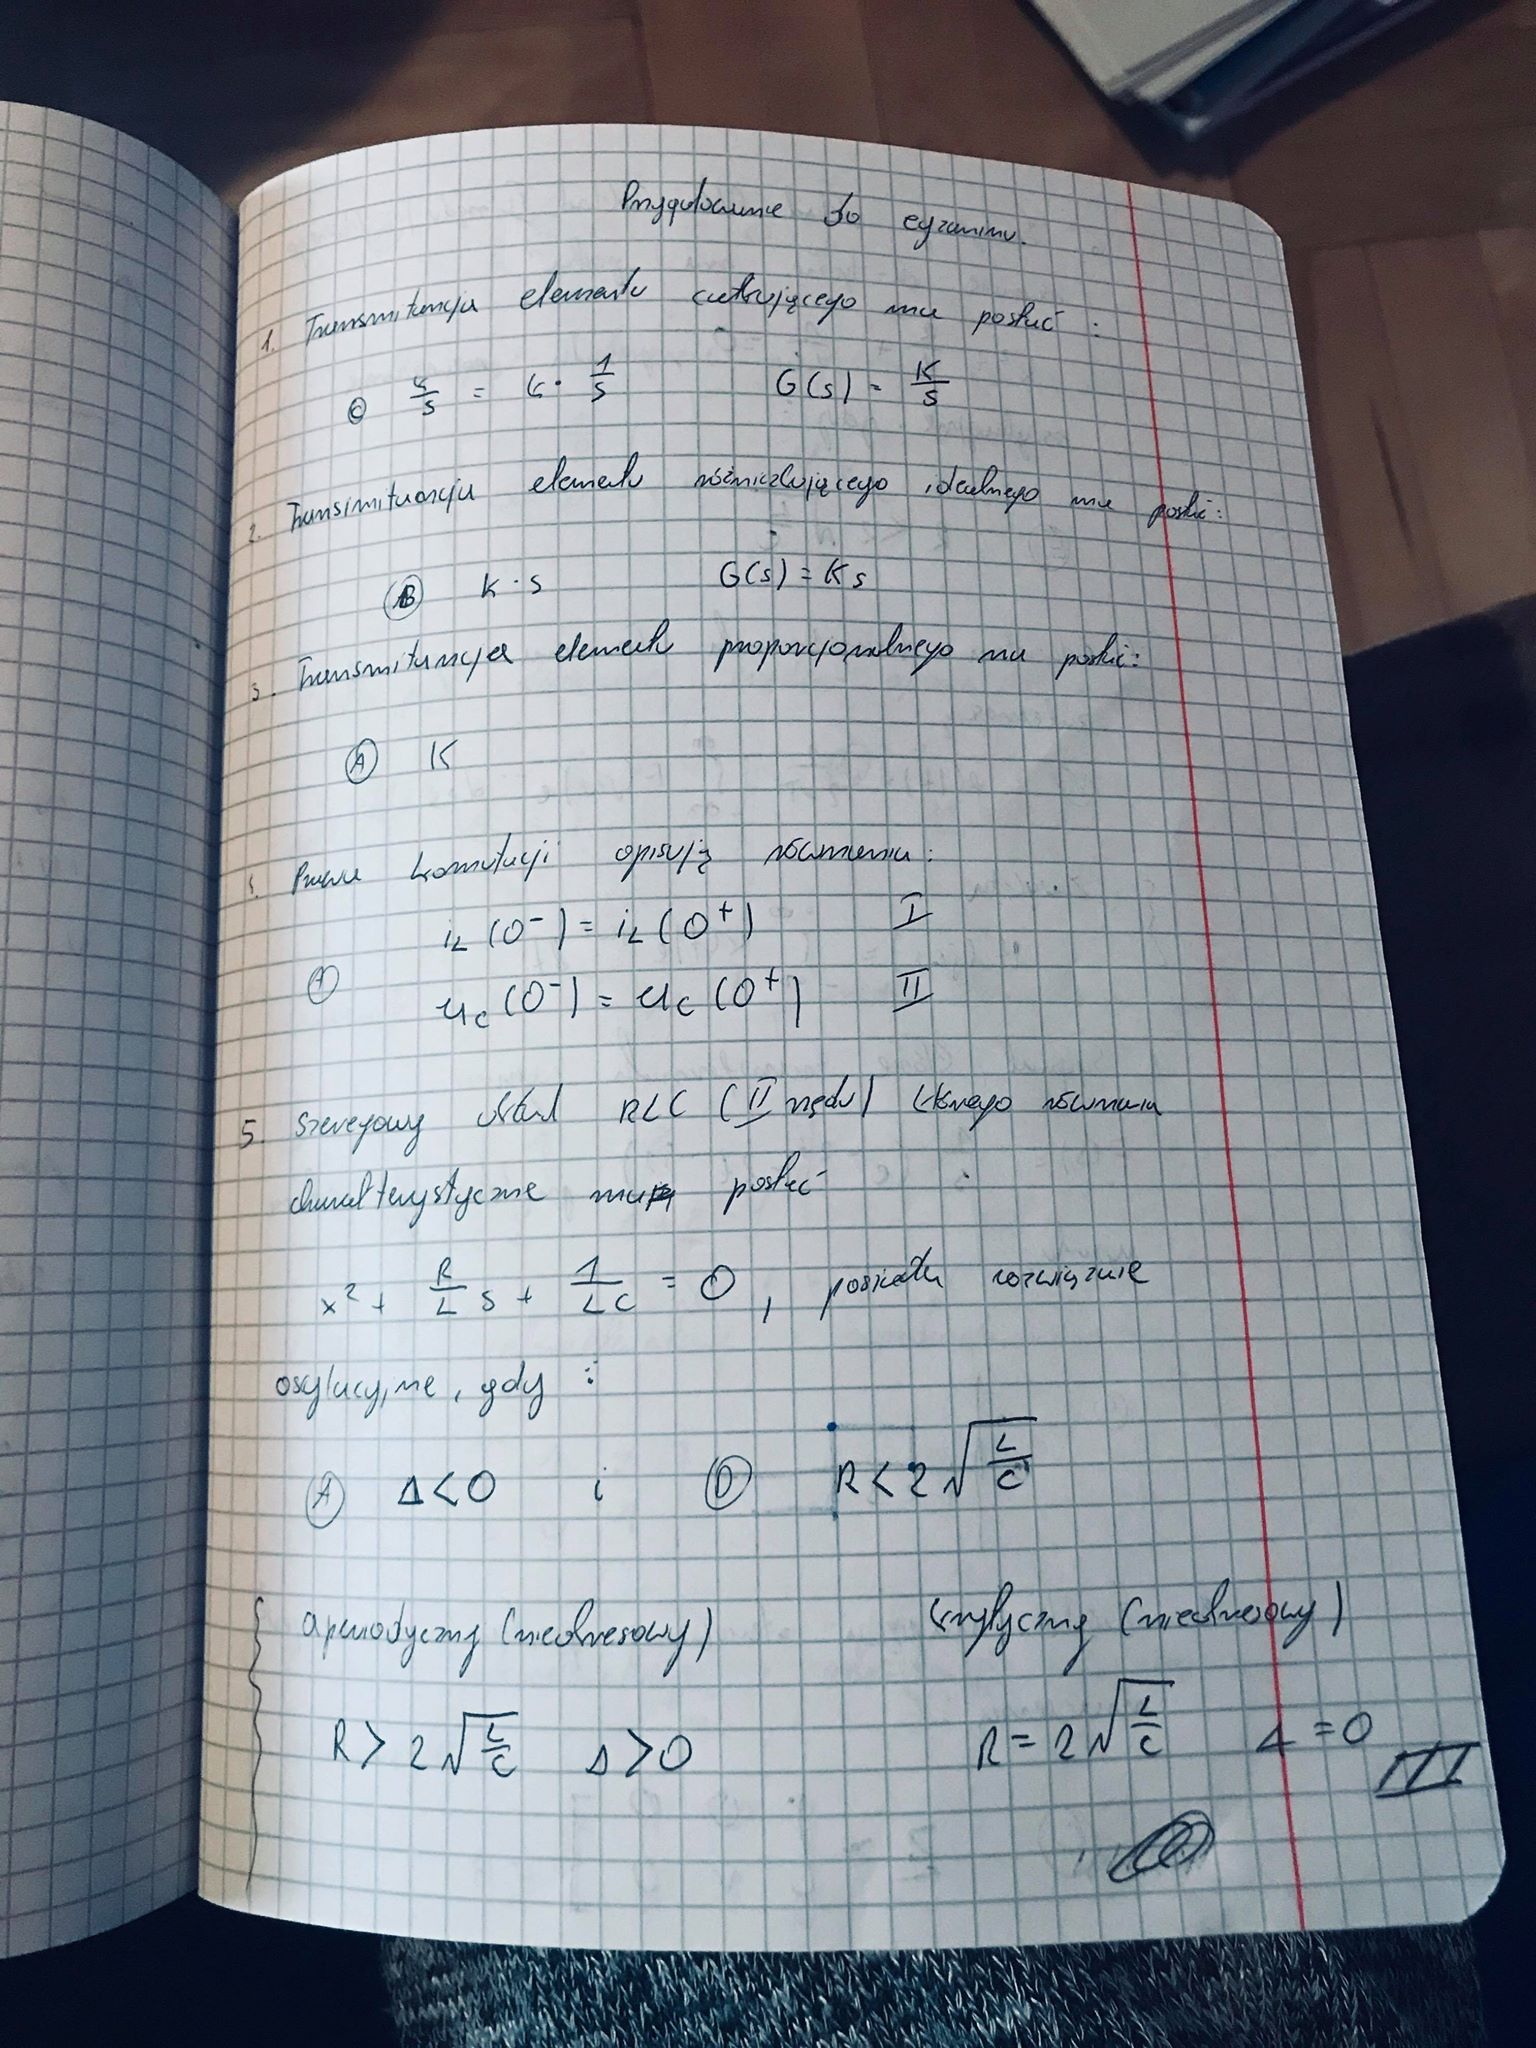 Przygotowanie do egzaminu.
1. Transmitancja elementu całkującego ma postać :
Ⓒ k/s = k · 1/s    G(s) = K/s
2. Transimitancja elementu różniczkującego idealnego ma postać:
Ⓑ k · s    G(s) = Ks
3. Transmitancja elementu proporcjonalnego ma postać:
Ⓐ K
4. Prawa komutacji opisują równania :
i_L (0⁻) = i_L (0⁺)    I
Ⓐ
u_c (0⁻) = u_c (0⁺)    II
5. Szeregowy układ RLC (II rzędu) którego równania
charakterystyczne ma postać
x² + R/L s + 1/LC = 0 , posiada rozwiązanie
oscylacyjne, gdy :
Ⓐ Δ<0    i    Ⓓ R < 2 √(L/C)
aperiodyczny (nieokresowy)    krytyczny (nieokresowy)
R > 2 √(L/C)    Δ>0    R = 2 √(L/C)    Δ = 0
III